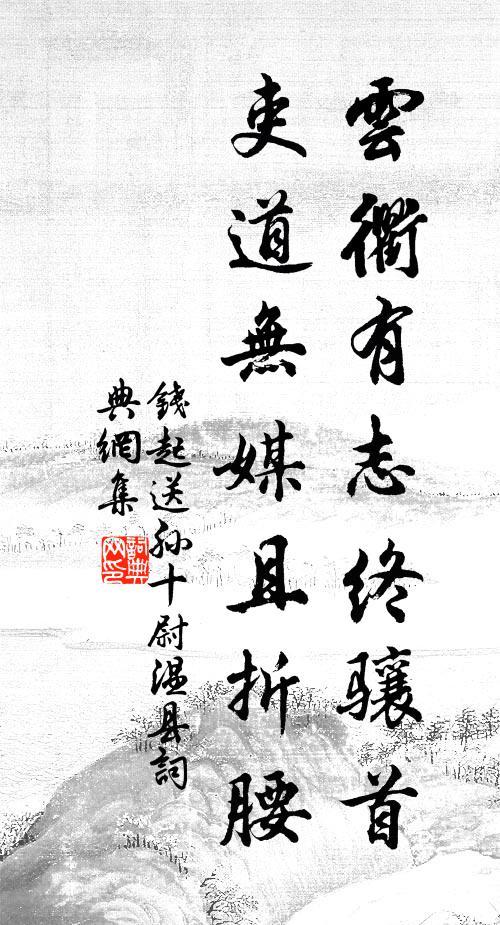 雲衢有志終骧首
吏道無媒且折腰
錢起送孫十尉溫县詞
典網集
詞典網印